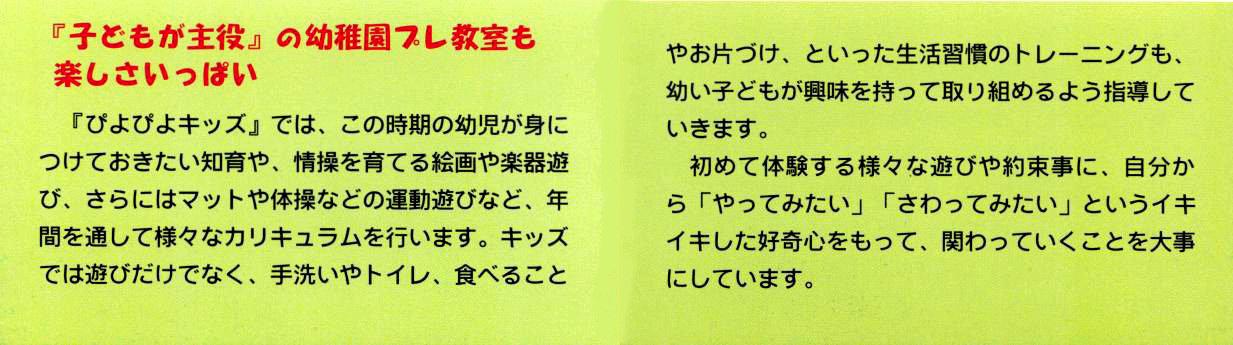 『子どもが主役』の幼稚園プレ教室も
楽しさいっぱい
『ぴよぴよキッズ』では、この時期の幼児が身に
つけておきたい知育や、情操を育てる絵画や楽器遊
び、さらにはマットや体操などの運動遊びなど、年
間を通して様々なカリキュラムを行います。キッズ
では遊びだけでなく、手洗いやトイレ、食べること
やお片づけ、といった生活習慣のトレーニングも、
幼い子どもが興味を持って取り組めるよう指導して
いきます。
初めて体験する様々な遊びや約束事に、自分か
ら「やってみたい」「さわってみたい」というイキ
イキした好奇心をもって、関わっていくことを大事
にしています。